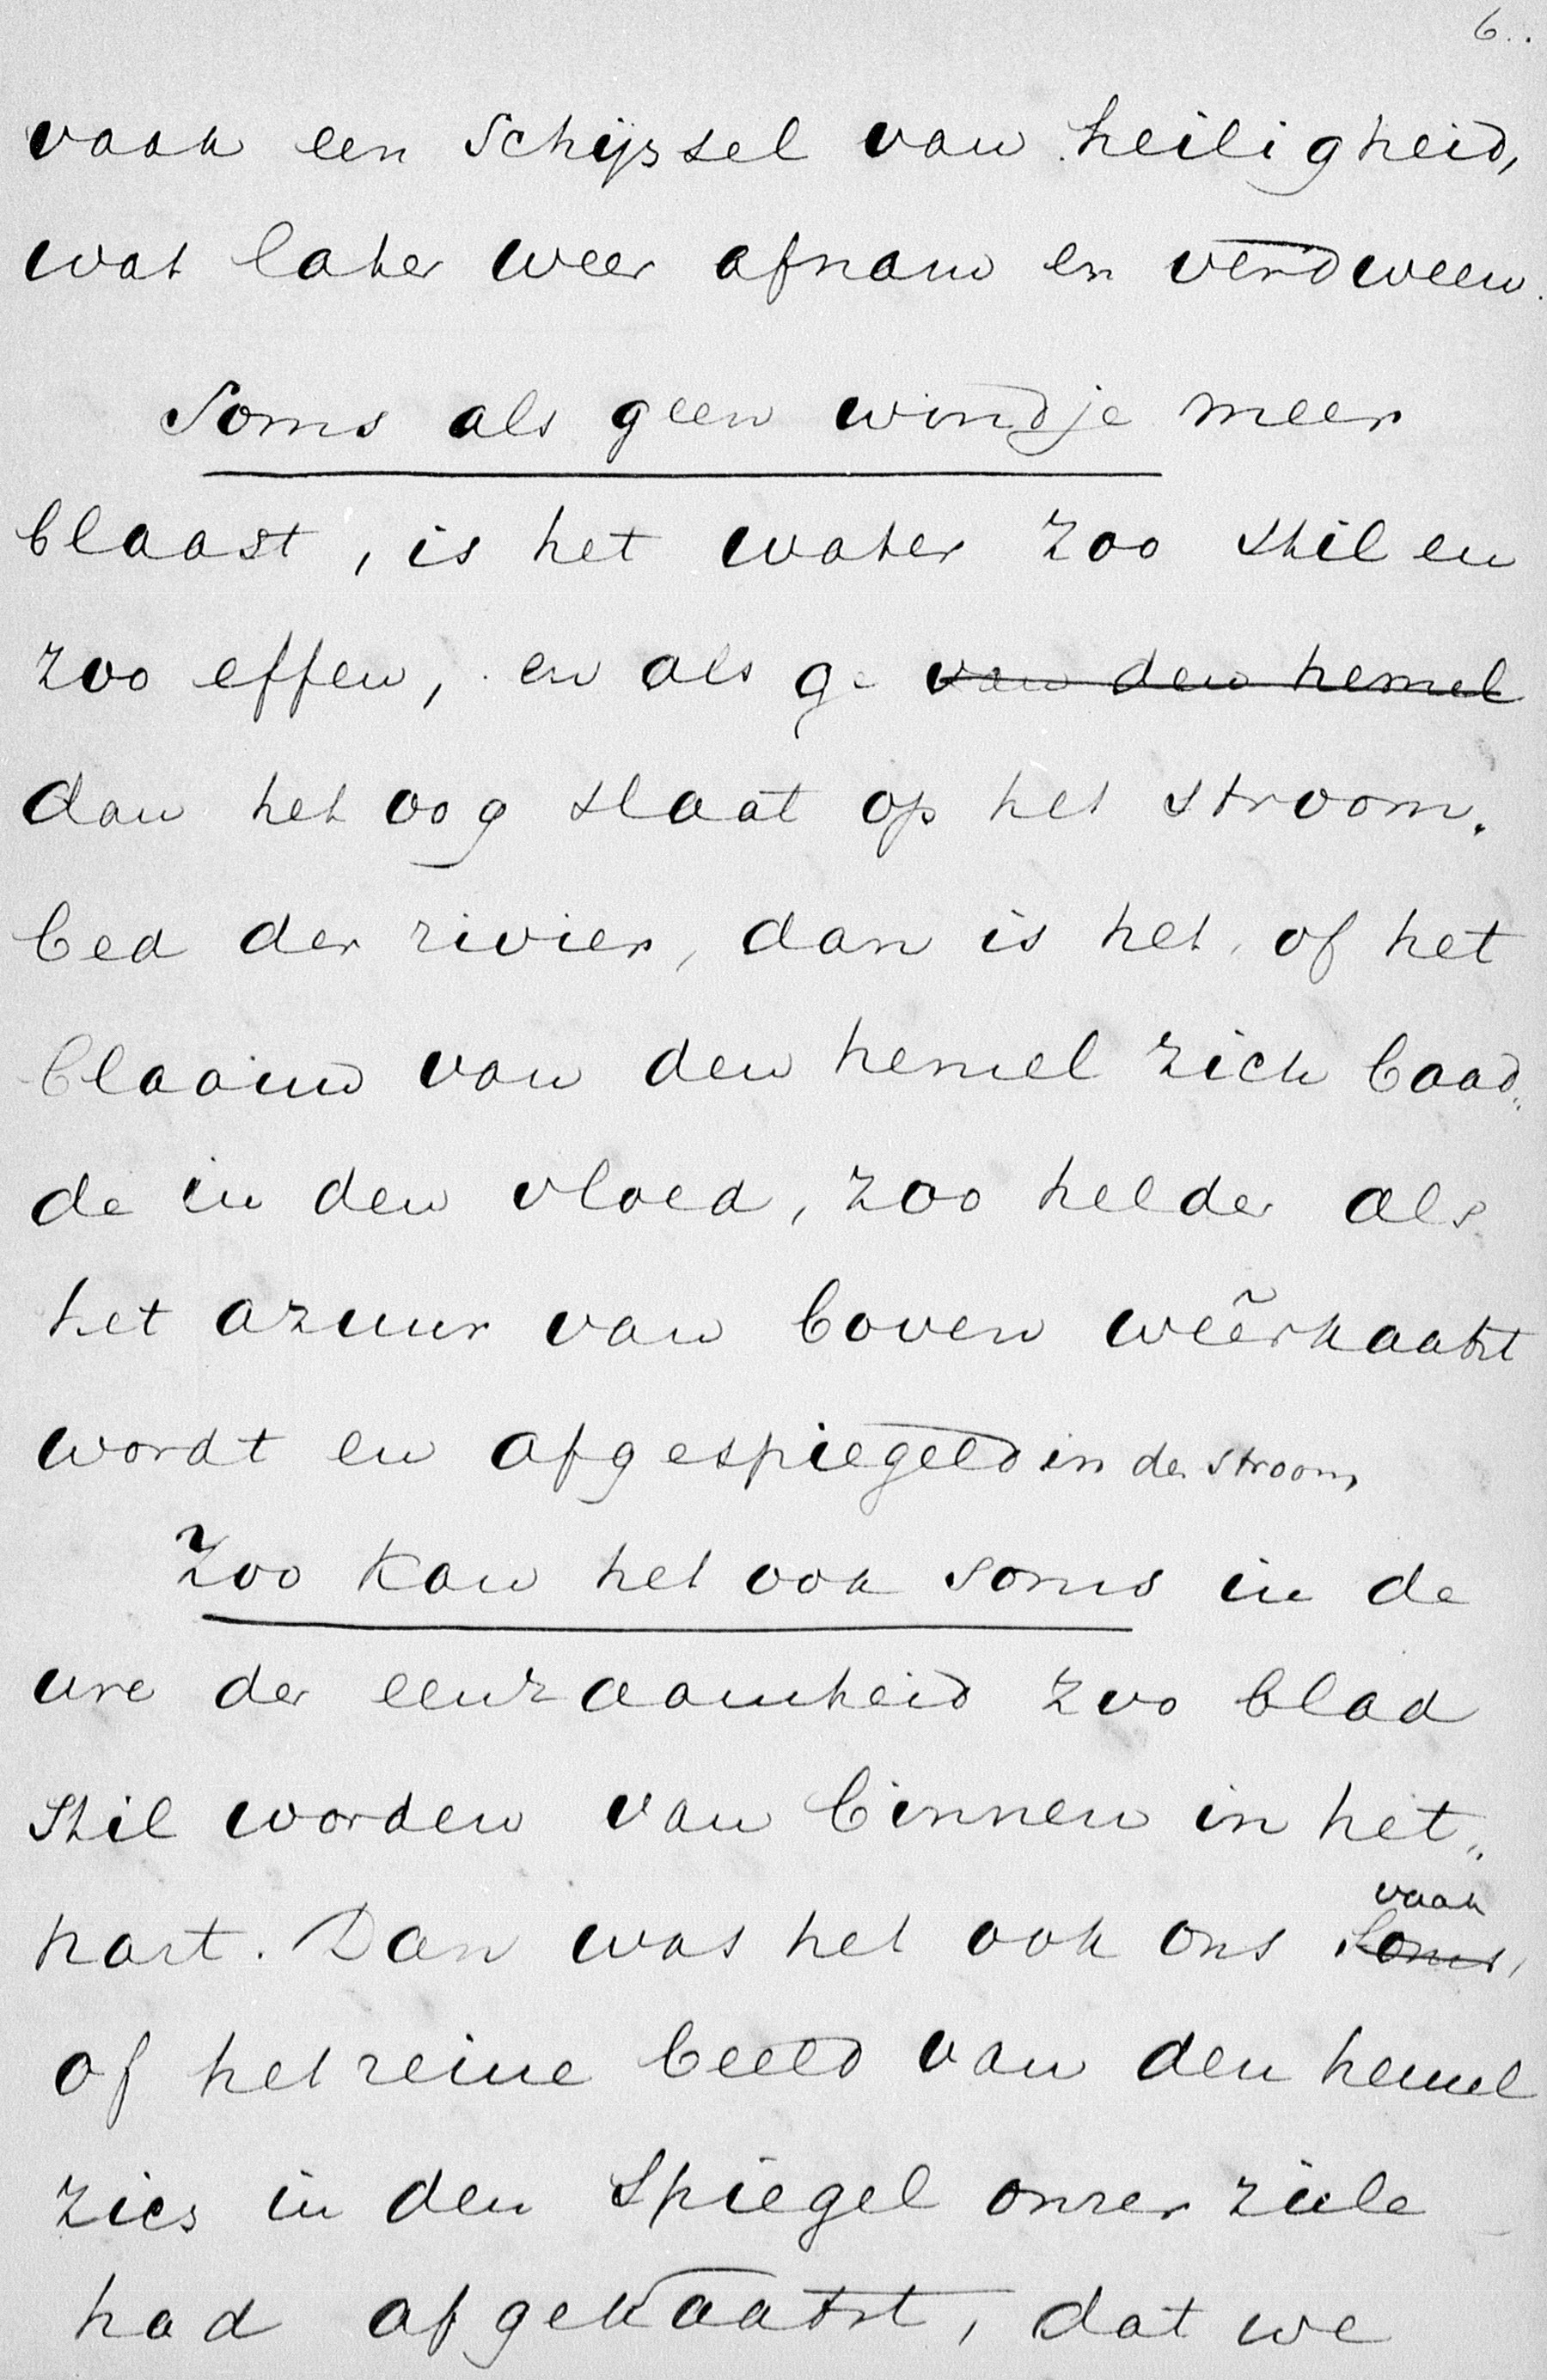 6..
vaak een schijnsel van heiligheid,
wat later weer afnam en verdween.
Soms als geen windje meer
blaast, is het water zoo stil en
zoo effen, en als ge van den hemel
dan het oog slaat op het stroom.
bed der rivier, dan is het, of het
blaauw van den hemel zich baad„
de in den vloed, zoo helder als
het azuur van boven weêrkaatst
wordt en afgespiegeld in den stroom,
Zoo kan het ook soms in de
ure der eenzaamheid zoo blad
stil worden van binnen in het„
hart. Dan was het ook ons soms,
vaak
of het reine beeld van den hemel
zich in den spiegel onzer ziele
had afgekaatst, dat we